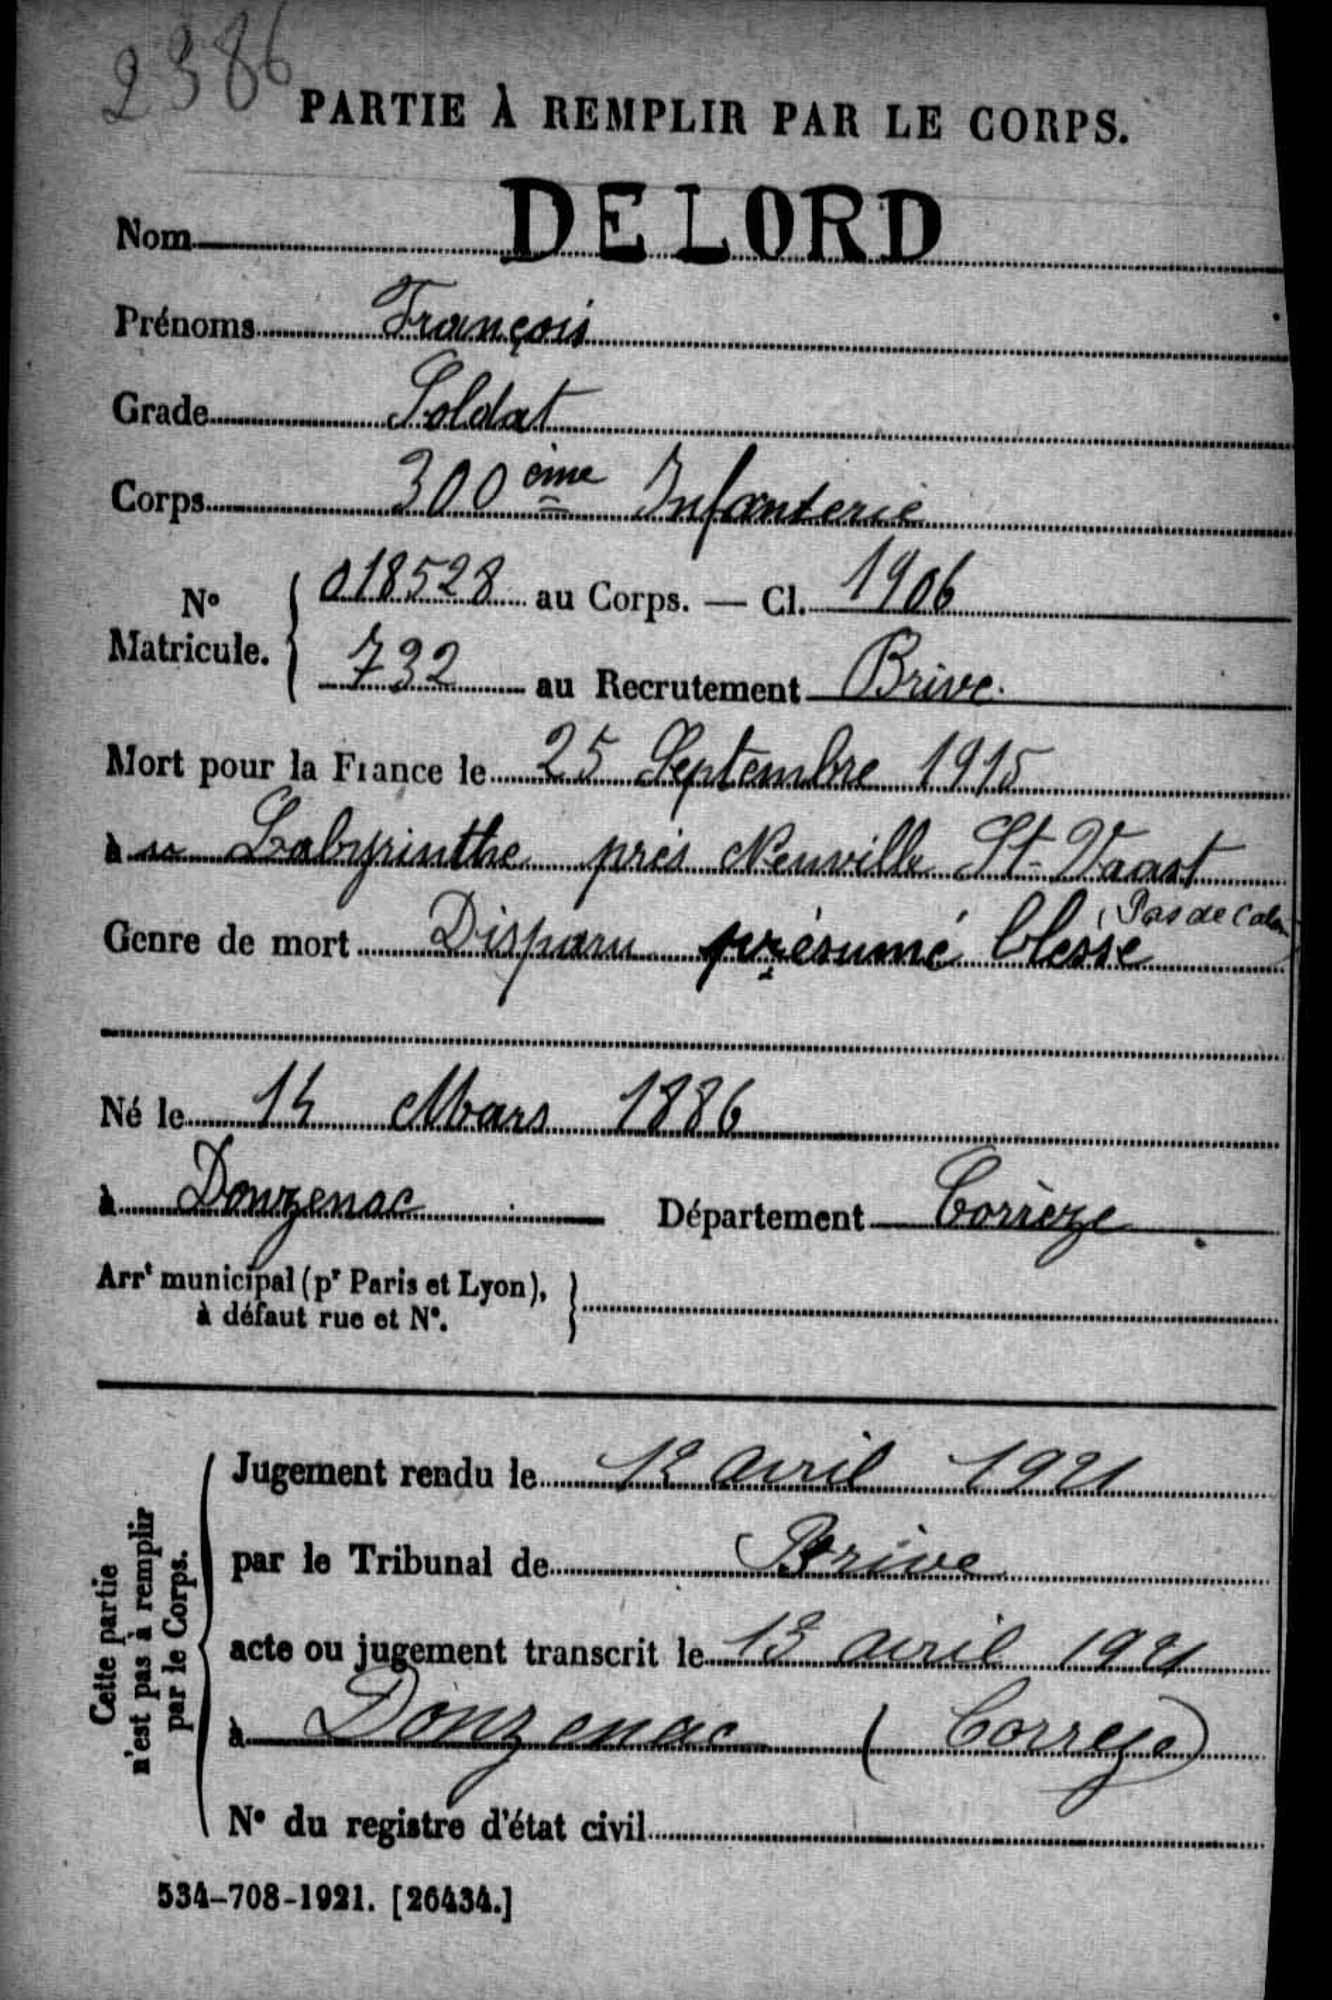 2386
PARTIE À REMPLIR PAR LE CORPS.
Nom DELORD
Prénoms François
Grade Soldat
Corps 300ème Infanterie
No Matricule. { 018528 au Corps. — Cl. 1906
732 au Recrutement Brive.
Mort pour la France le 25 Septembre 1915
à Labyrinthe près Neuville St-Vaast
(Pas de Cal
Genre de mort Disparu présumé blessé
Né le 14 Mars 1886
à Donzenac Département Corrèze
Arrt municipal (pr Paris et Lyon),
à défaut rue et No.
Cette partie
n'est pas à remplir
par le Corps.
Jugement rendu le 12 avril 1921
par le Tribunal de Brive
acte ou jugement transcrit le 13 avril 1921
à Donzenac (Corrèze)
No du registre d'état civil
534-708-1921. [26434.]